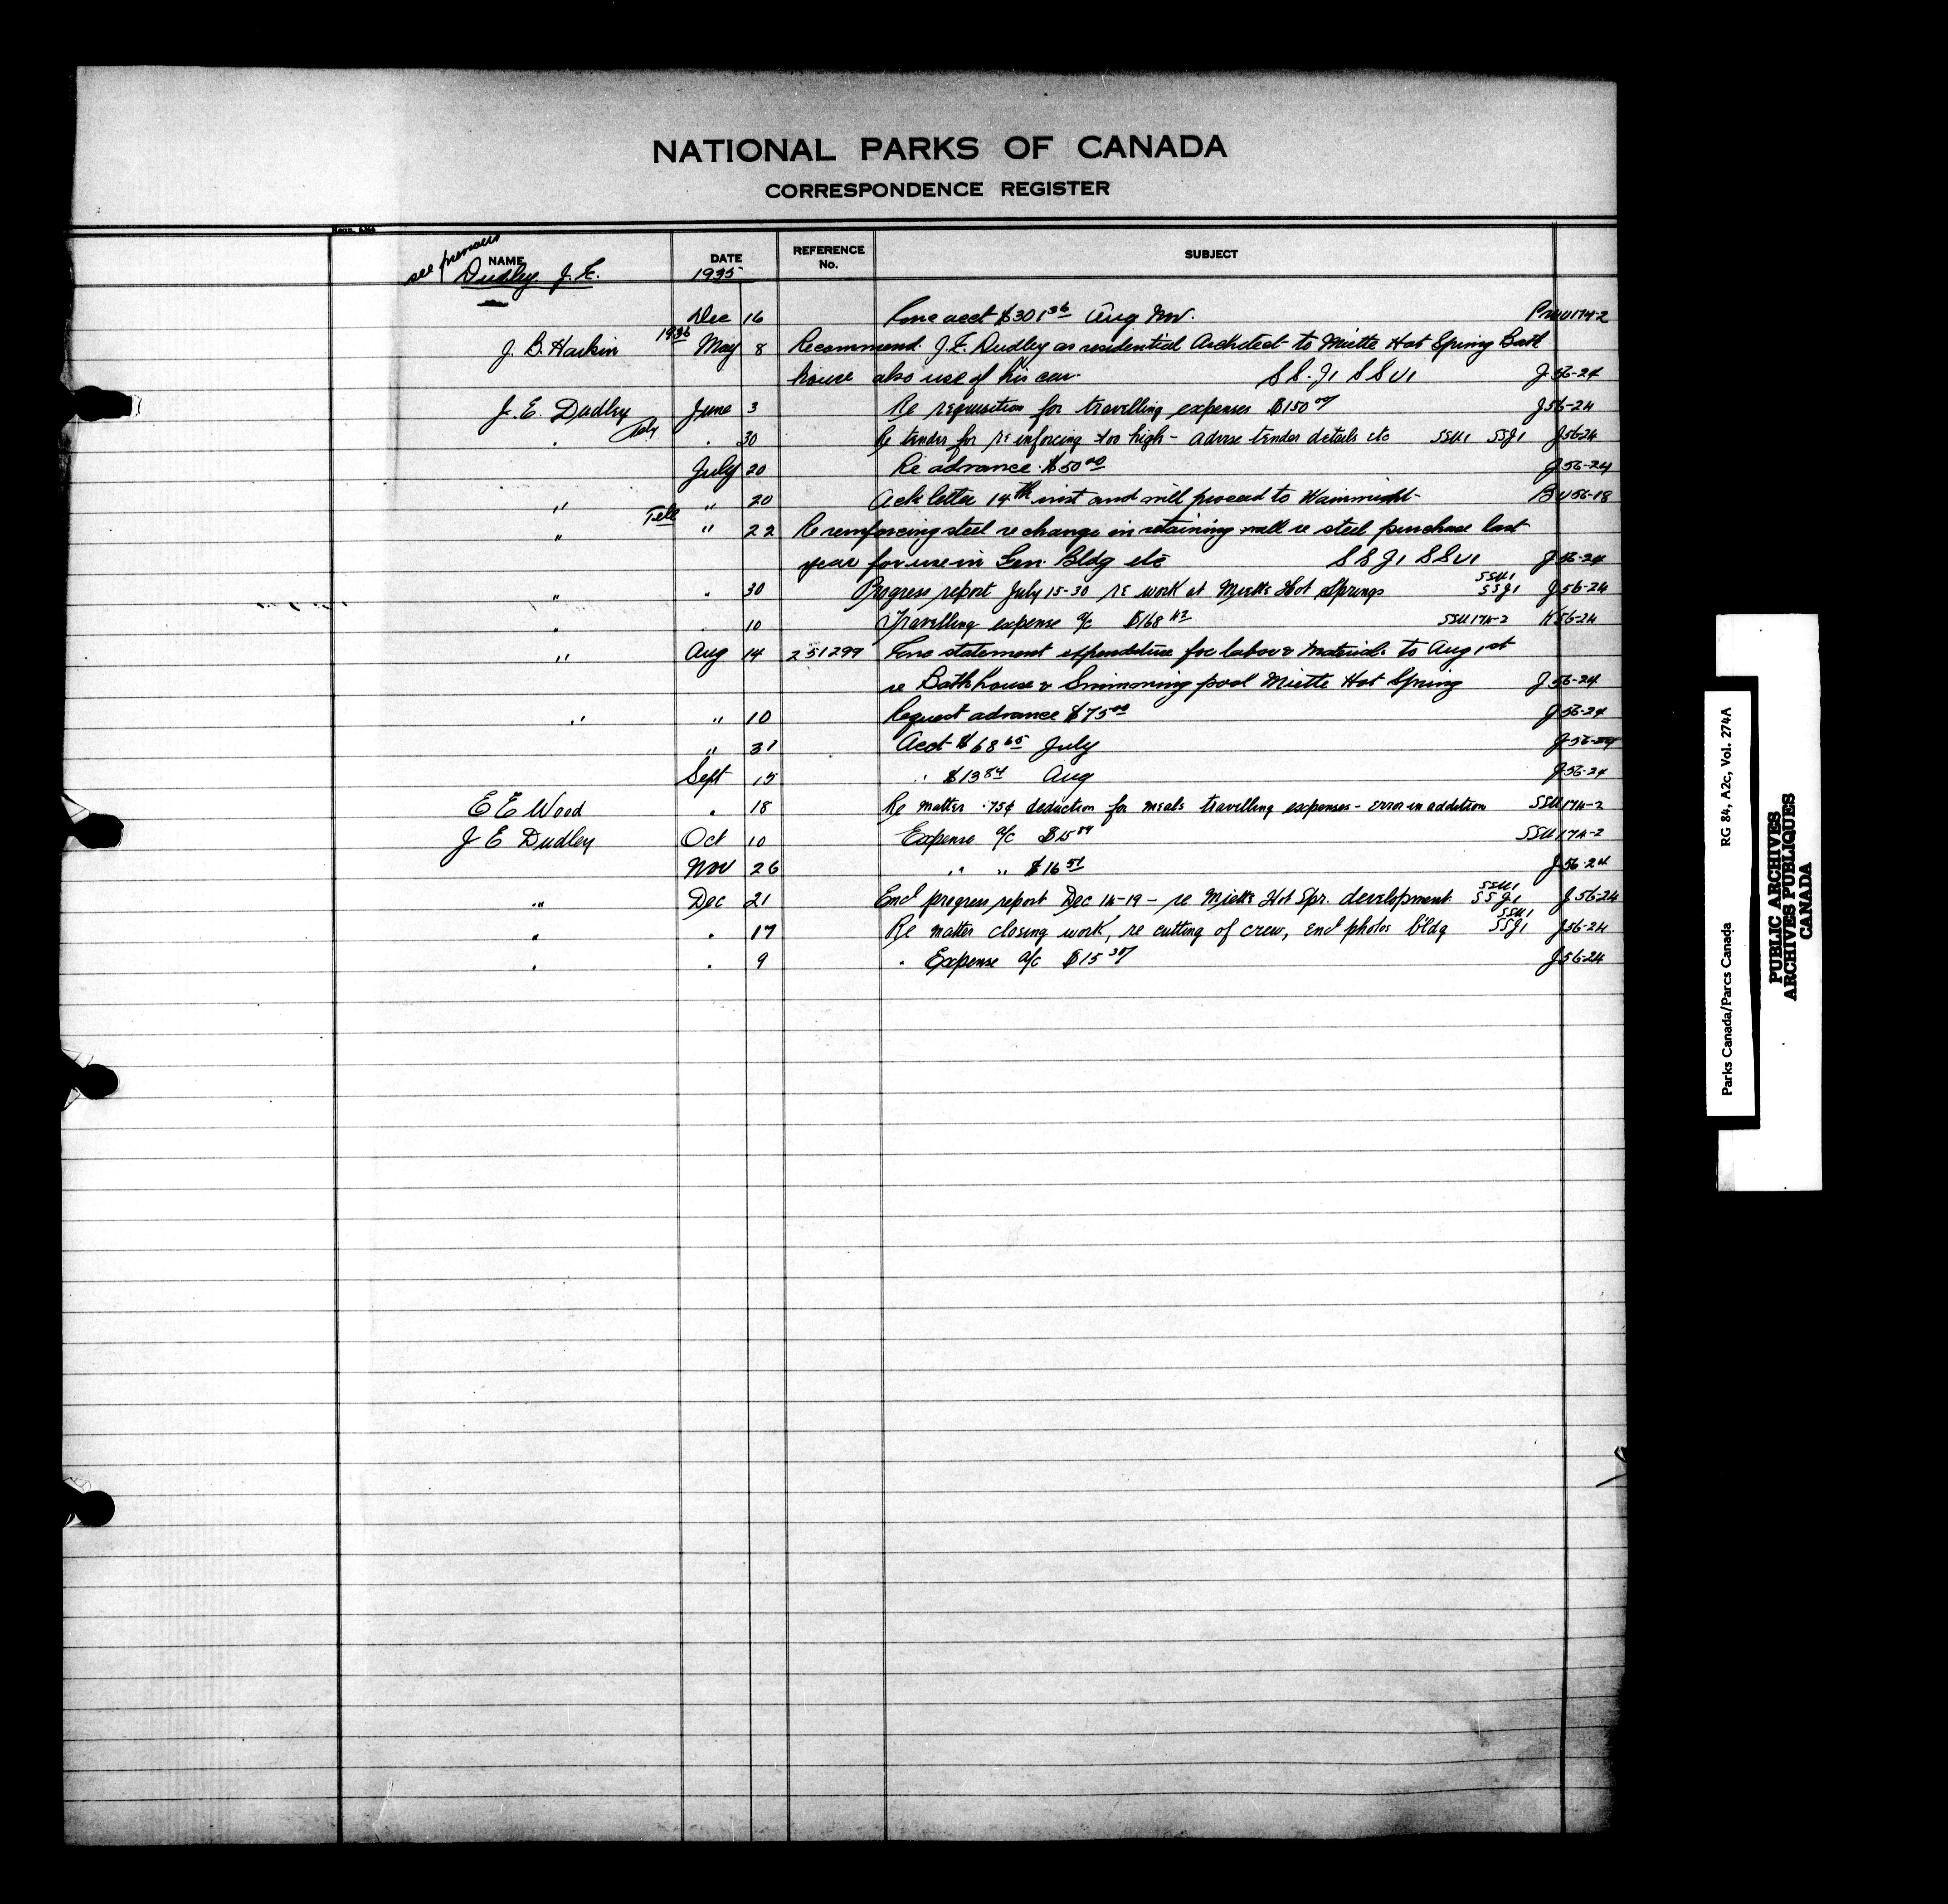 NATIONAL PARKS OF CANADA
CORRESPONDENCE REGISTER
see previous
NAME DATE REFERENCE No. SUBJECT
Dudley. J. E. 1935
Dec 16 acct $301 36 Aug Nov. 174-2
J. B. Harkin 1936 May 8 Recommend. J. E. Dudley as residential Architect to Miette Hot Spring Bath
house also use of his car. SS. J1 SSU1 J 56-24
J. E. Dudley June 3 Re requisition for travelling expenses $150 00/ J56-24
" " 30 Re tender for reinforcing too high - advise tender details etc SSU1 SSJ1 J56-24
July 20 Re advance $50 00 J56-24
" " 20 Ack letter 14th inst and will proceed to Wainwright BU56-18
" Tele " 22 Re reinforcing steel re change in retaining wall re steel purchase last
year for use in Gen. Bldg etc SSJ1 SSU1 J 56-24
" " 30 Progress report July 15-30 re work at Miette Hot Springs SSU1 SSJ1 J56-24
" 10 Travelling expense a/c $168 42 SSU174-2 K56-24
" Aug 14 251299 statement expenditure for labour & Materials to Aug 1st
re Bathhouse & Swimming pool Miette Hot Spring J 56-24
" " 10 Request advance $75 00 J 56-24
" 31 Acct $68 65 July J-56-24
Sept 15 " $13 84 Aug J56-24
E E Wood " 18 Re matter .75¢ deduction for meals travelling expenses - error in addition SSU174-2
J E Dudley Oct 10 Expense a/c $15 89 SSU174-2
Nov 26 " " $16 51 J56-24
" Dec 21 Encl progress report Dec 14-19 - re Miette Hot Spr. development SSU1 SSJ1 J 56-24
" " 17 Re matter closing work, re cutting of crew, encl photos bldg SSU1 SSJ1 J56-24
" " 9 " Expense a/c $15 30/ J56-24
Parks Canada/Parcs Canada RG 84, A2c, Vol. 274A
PUBLIC ARCHIVES
ARCHIVES PUBLIQUES
CANADA